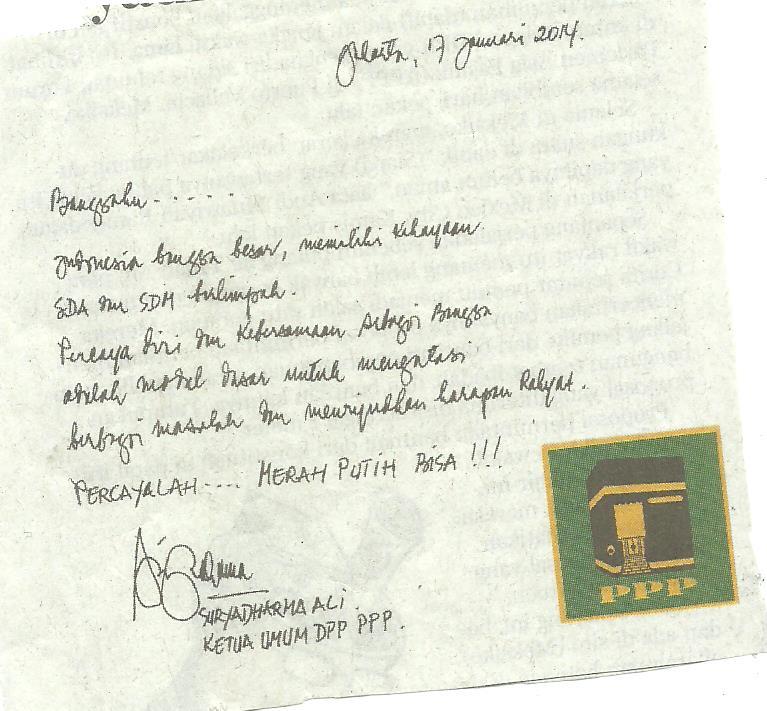 Jakarta, 17 Januari 2014.
Bangsaku - - - - - -
Indonesia bangsa besar, memiliki kekayaan
SDA dan SDM berlimpah.
Percaya diri dan kebersamaan sebagai Bangsa
adalah modal dasar untuk mengatasi
berbagai masalah dan mewujudkan harapan Rakyat.
PERCAYALAH.... MERAH PUTIH BISA !!!
SURYADHARMA ALI.
KETUA UMUM DPP PPP.
PPP